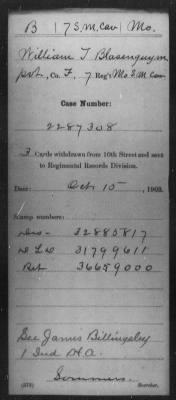 B | 7 S.M. Cav | Mo.
William T Blasenguym
pvt., Co. F, 7 Reg't Mo. S. M. Cav.
Case Number:
2287308
3 Cards withdrawn from 10th Street and sent
to Regimental Records Division.
Date: Oct 15, 1903.
Stamp numbers:
32880817
31799611
Ret 36659000
See James Billingsley
1 Ind H.A.
Sommers.
(373) Searcher.